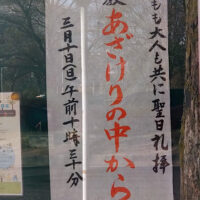 もも大人も共に聖日礼拝
あざけりの中から
三月十日(日)午前十時三十分